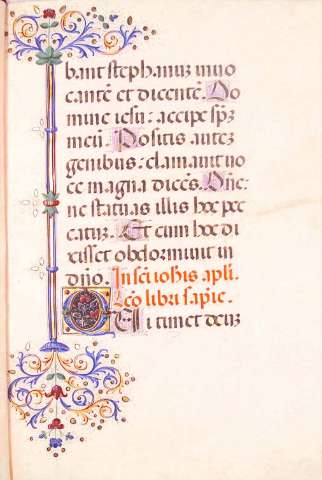 bant stephanuȝ inuo
cantē et dicentē. Do
mine iesu: accipe sp̄ȝ
meū. Positis auteȝ
genibus: clamauit uo
ce magna dicēs. Dn̄e:
ne statuas illis hoc pec
catuȝ. Et cum hoc di
xisset obdormiuit in
dn̄o. In sc̄i iohis apl̄i.
Lc̄o libri sapie.
Qui timet deuȝ